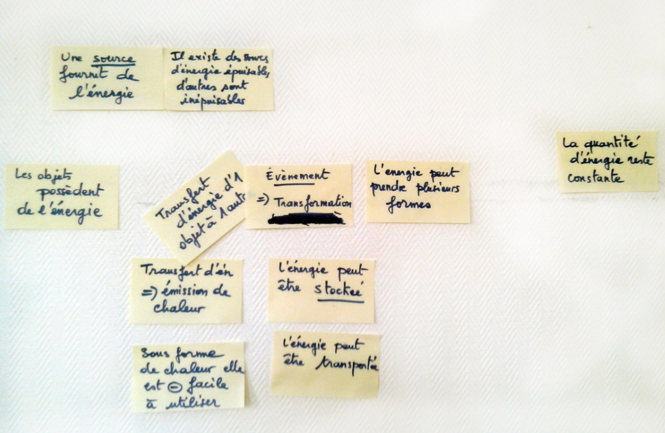 Une source
fournit de
l'énergie
Il existe des sources
d'énergie épuisables,
d'autres sont
inépuisables
La quantité
d'énergie reste
constante
Les objets
possèdent
de l'énergie
Transfert
d'énergie d'1
objet à 1 autre
Évènement
=> Transformation
L'énergie peut
prendre plusieurs
formes
Transfert d'én
=> émission de
chaleur
L'énergie peut
être stockée
Sous forme
de chaleur elle
est ⊖ facile
à utiliser
L'énergie peut
être transportée